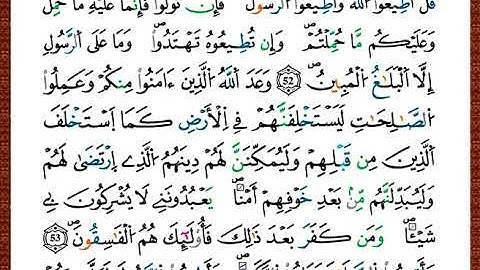 قُلْ أَطِيعُوا۟ اللَّهَ وَأَطِيعُوا۟ الرَّسُولَ فَإِن تَوَلَّوْا۟ فَإِنَّمَا عَلَيْهِ مَا حُمِّلَ
وَعَلَيْكُم مَّا حُمِّلْتُمْ وَإِن تُطِيعُوهُ تَهْتَدُوا۟ وَمَا عَلَى الرَّسُولِ
إِلَّا الْبَلَاغُ الْمُبِينُ 52 وَعَدَ اللَّهُ الَّذِينَ ءَامَنُوا۟ مِنكُمْ وَعَمِلُوا۟
الصَّٰلِحَٰتِ لَيَسْتَخْلِفَنَّهُمْ فِي الْأَرْضِ كَمَا اسْتَخْلَفَ
الَّذِينَ مِن قَبْلِهِمْ وَلَيُمَكِّنَنَّ لَهُمْ دِينَهُمُ الَّذِي ارْتَضَىٰ لَهُمْ
وَلَيُبَدِّلَنَّهُم مِّنۢ بَعْدِ خَوْفِهِمْ أَمْنًا يَعْبُدُونَنِي لَا يُشْرِكُونَ بِي
شَيْـًٔا وَمَن كَفَرَ بَعْدَ ذَٰلِكَ فَأُو۟لَٰٓئِكَ هُمُ الْفَٰسِقُونَ 53